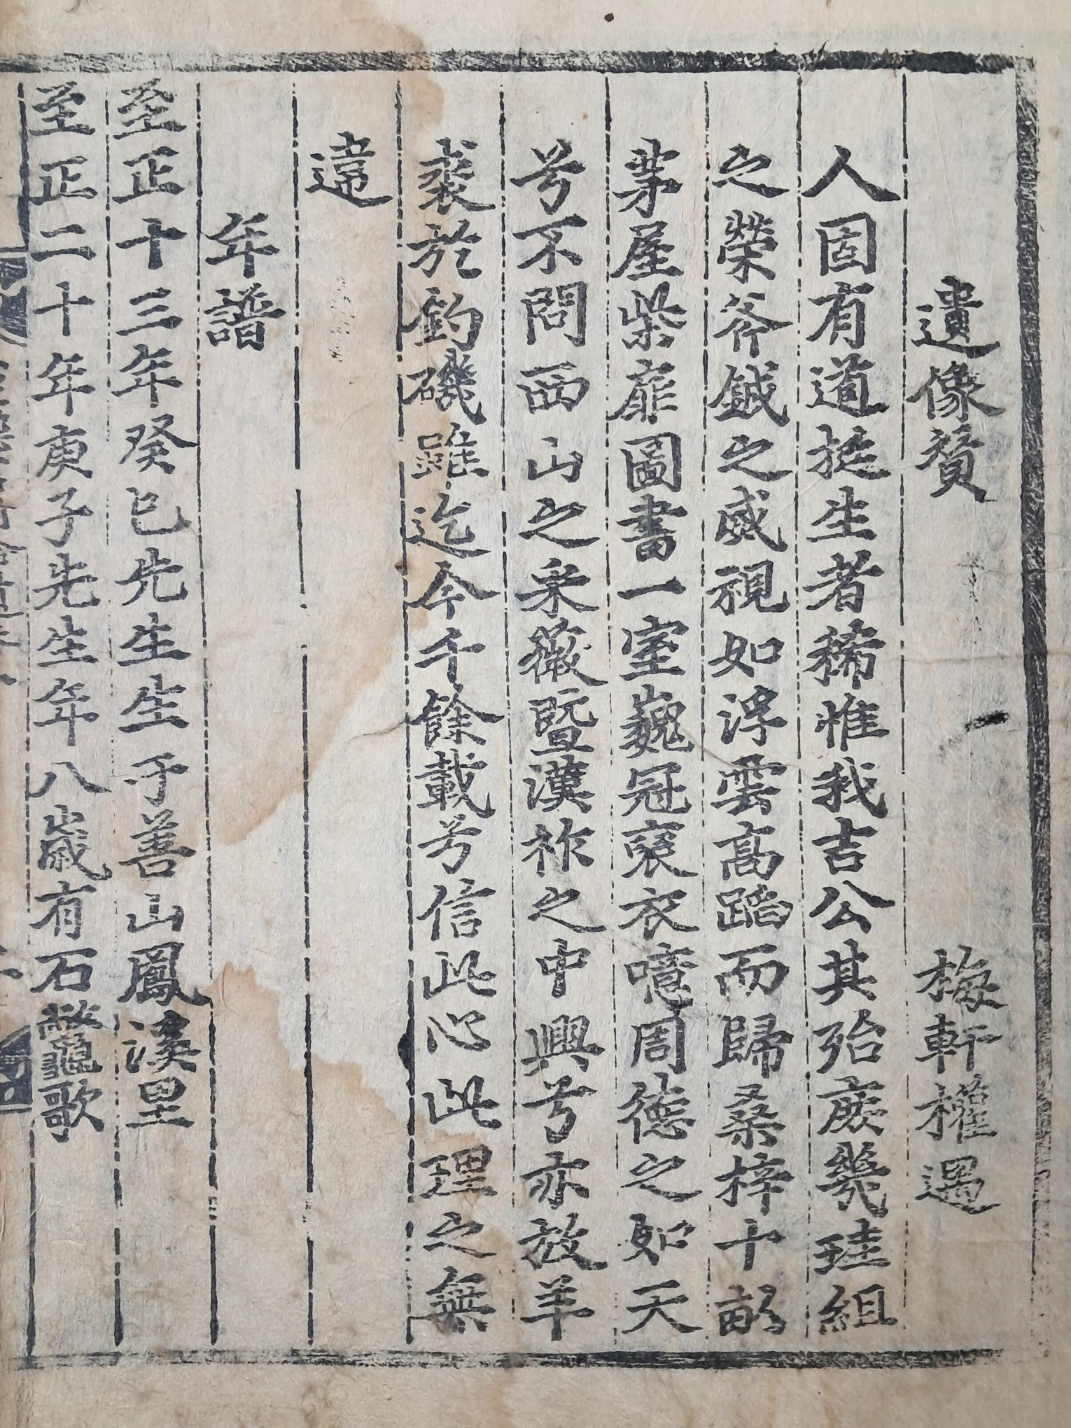 遺像贊 梅軒權遇
人固有道挺生者稀惟我吉公其殆庶幾珪組
之榮斧鉞之威視如浮雲高蹈而歸桑梓十畝
茅屋柴扉圖書一室巍冠褒衣噫周德之如天
兮不問西山之采薇曁漢祚之中興兮亦放羊
裘於釣磯雖迄今千餘載兮信此心此理之無
違
年譜
至正十三年癸巳先生生于善山鳳溪里
至正二十年庚子先生年八歲有石鼈歌